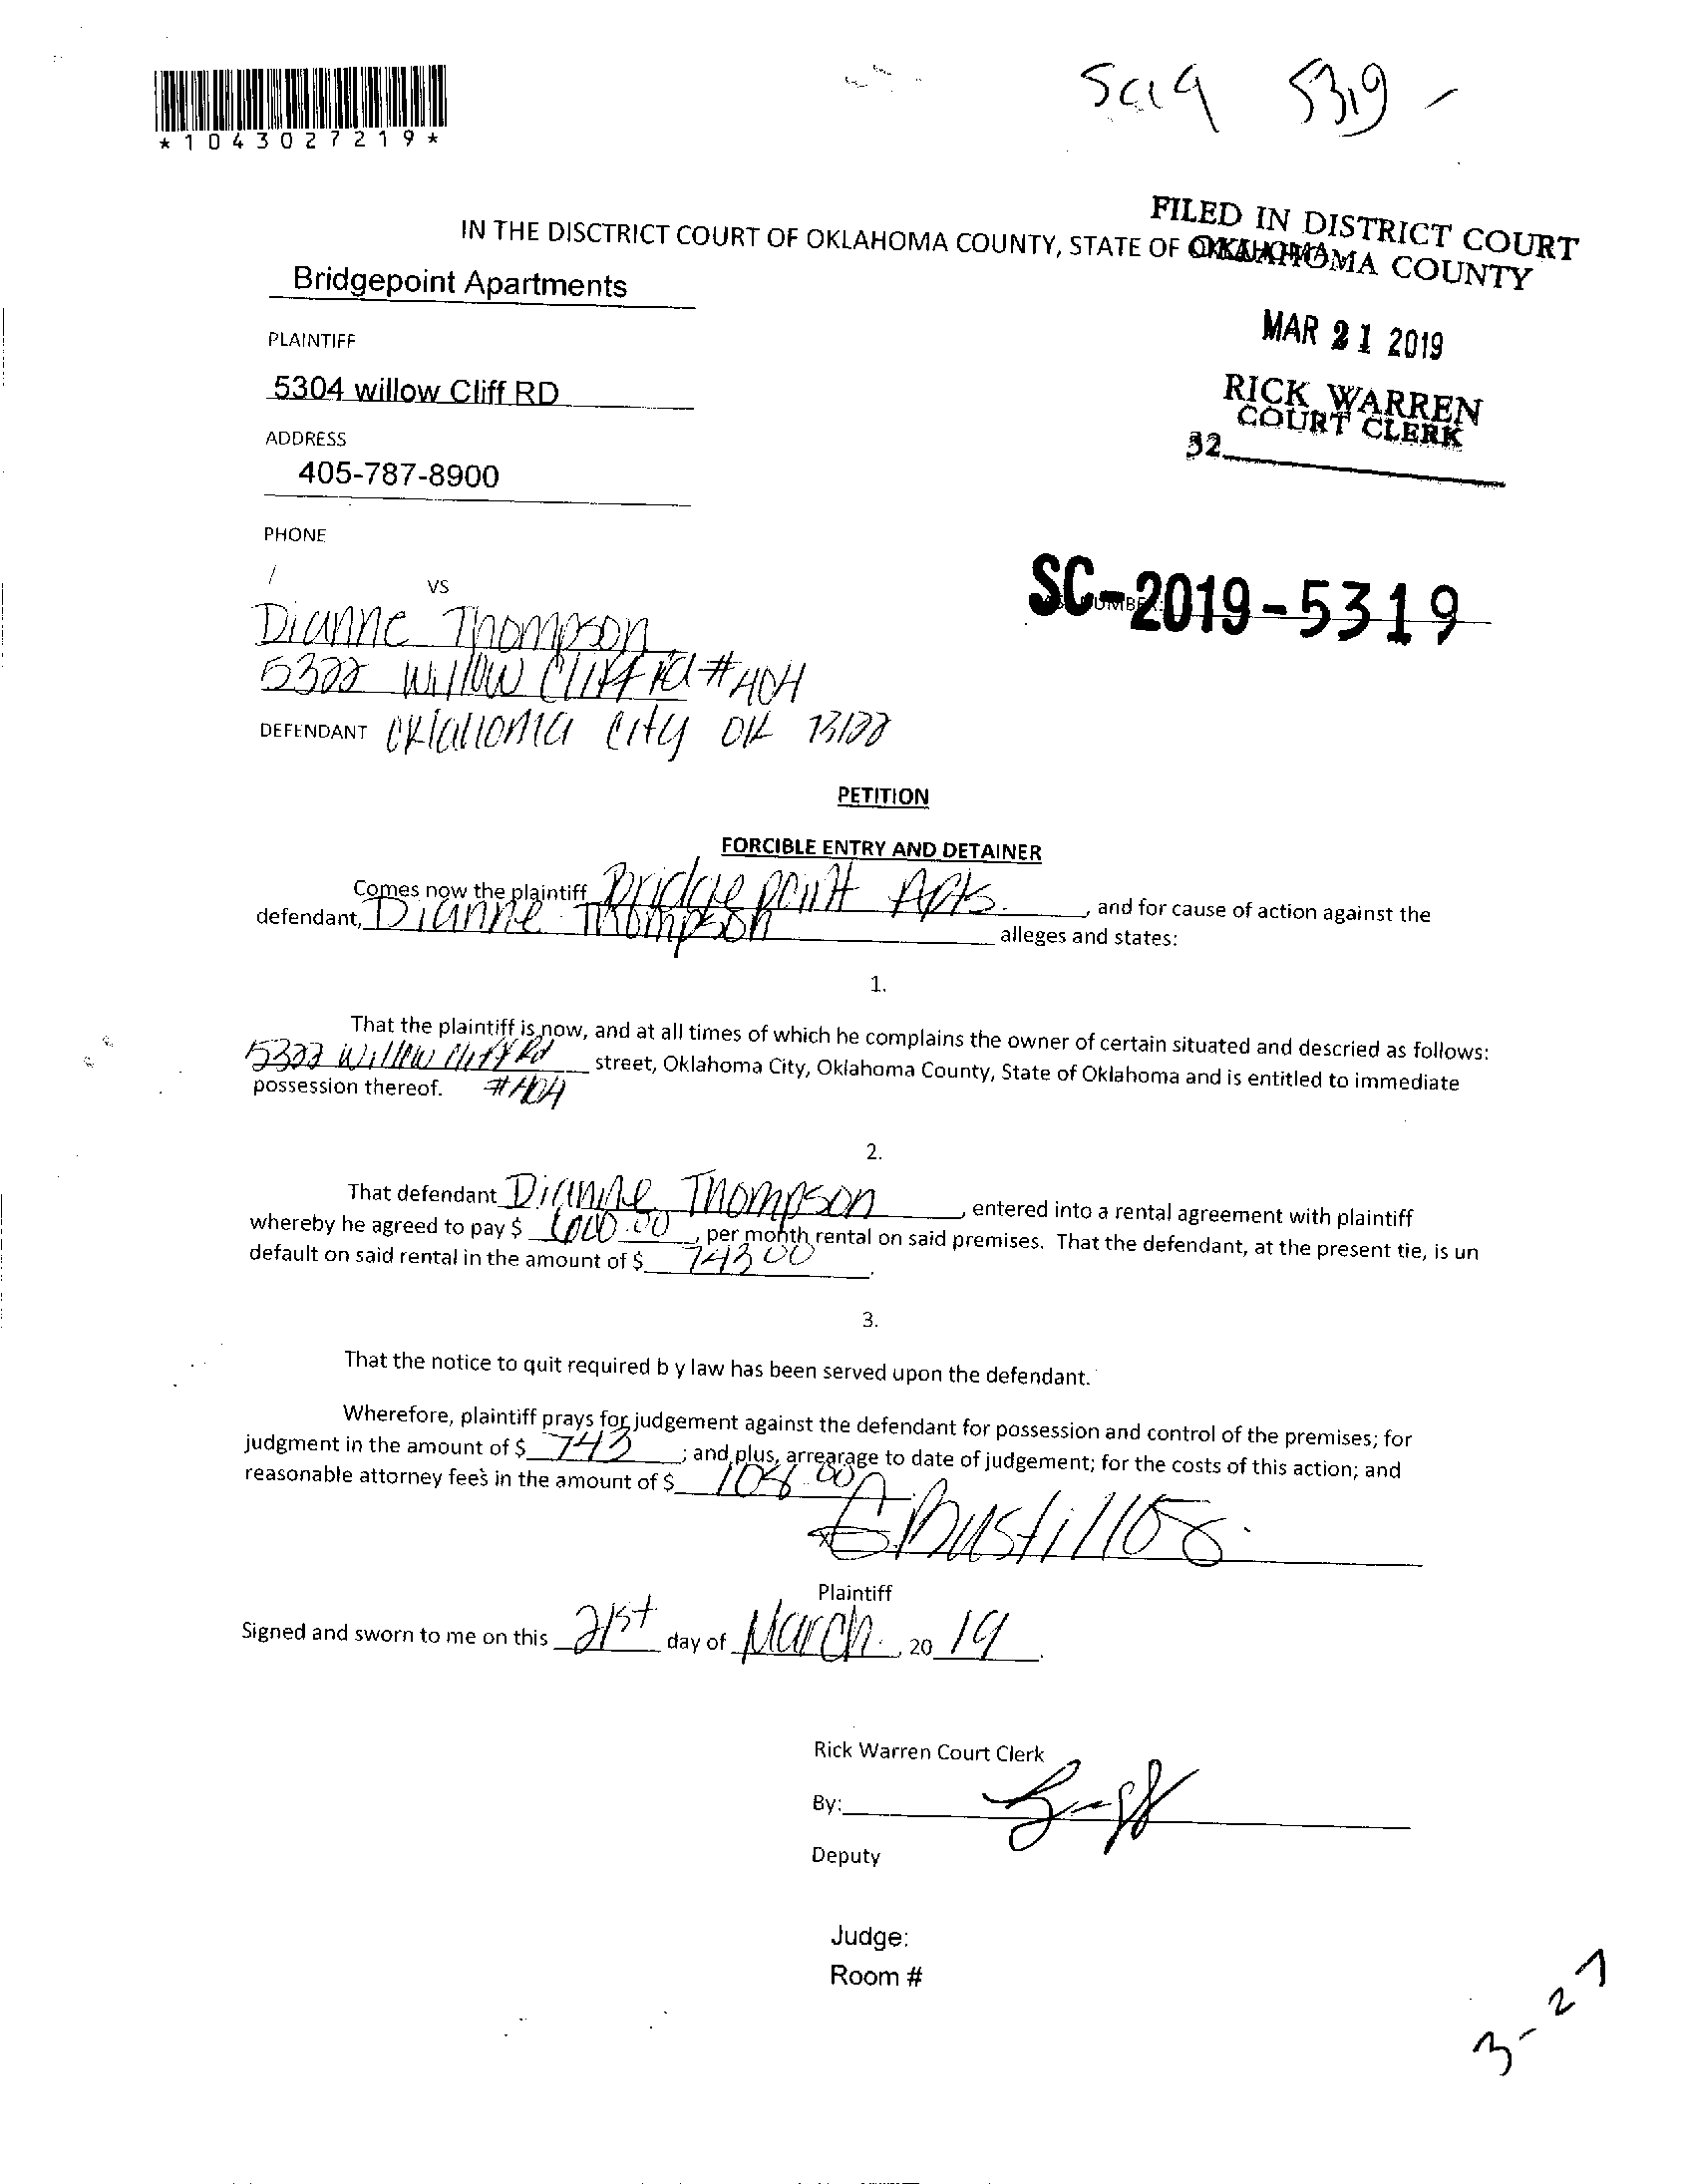 Sc19 5319 -
*1043027219*
FILED IN DISTRICT COURT
OKLAHOMA COUNTY
IN THE DISCTRICT COURT OF OKLAHOMA COUNTY, STATE OF OKLAHOMA
Bridgepoint Apartments
PLAINTIFF
MAR 21 2019
5304 willow Cliff RD
RICK WARREN
COURT CLERK
ADDRESS
32
405-787-8900
PHONE
VS
SC-2019-5319
Dianne Thompson
5322 Willow Cliff Rd #404
DEFENDANT Oklahoma City OK 73122
PETITION
FORCIBLE ENTRY AND DETAINER
Comes now the plaintiff Bridgepoint Apts. , and for cause of action against the
defendant, Dianne Thompson alleges and states:
1.
That the plaintiff is now, and at all times of which he complains the owner of certain situated and descried as follows:
5322 Willow Cliff Rd street, Oklahoma City, Oklahoma County, State of Oklahoma and is entitled to immediate
possession thereof. #404
2.
That defendant Dianne Thompson , entered into a rental agreement with plaintiff
whereby he agreed to pay $ , per month rental on said premises. That the defendant, at the present tie, is un
default on said rental in the amount of $ 743 00 .
3.
That the notice to quit required b y law has been served upon the defendant.
Wherefore, plaintiff prays for judgement against the defendant for possession and control of the premises; for
judgment in the amount of $ 743 ; and plus, arrearage to date of judgement; for the costs of this action; and
reasonable attorney fee's in the amount of $ .
EBustillos
Plaintiff
Signed and sworn to me on this 21st day of March , 20 19 .
Rick Warren Court Clerk
By:
Deputy
Judge:
Room #
3-27